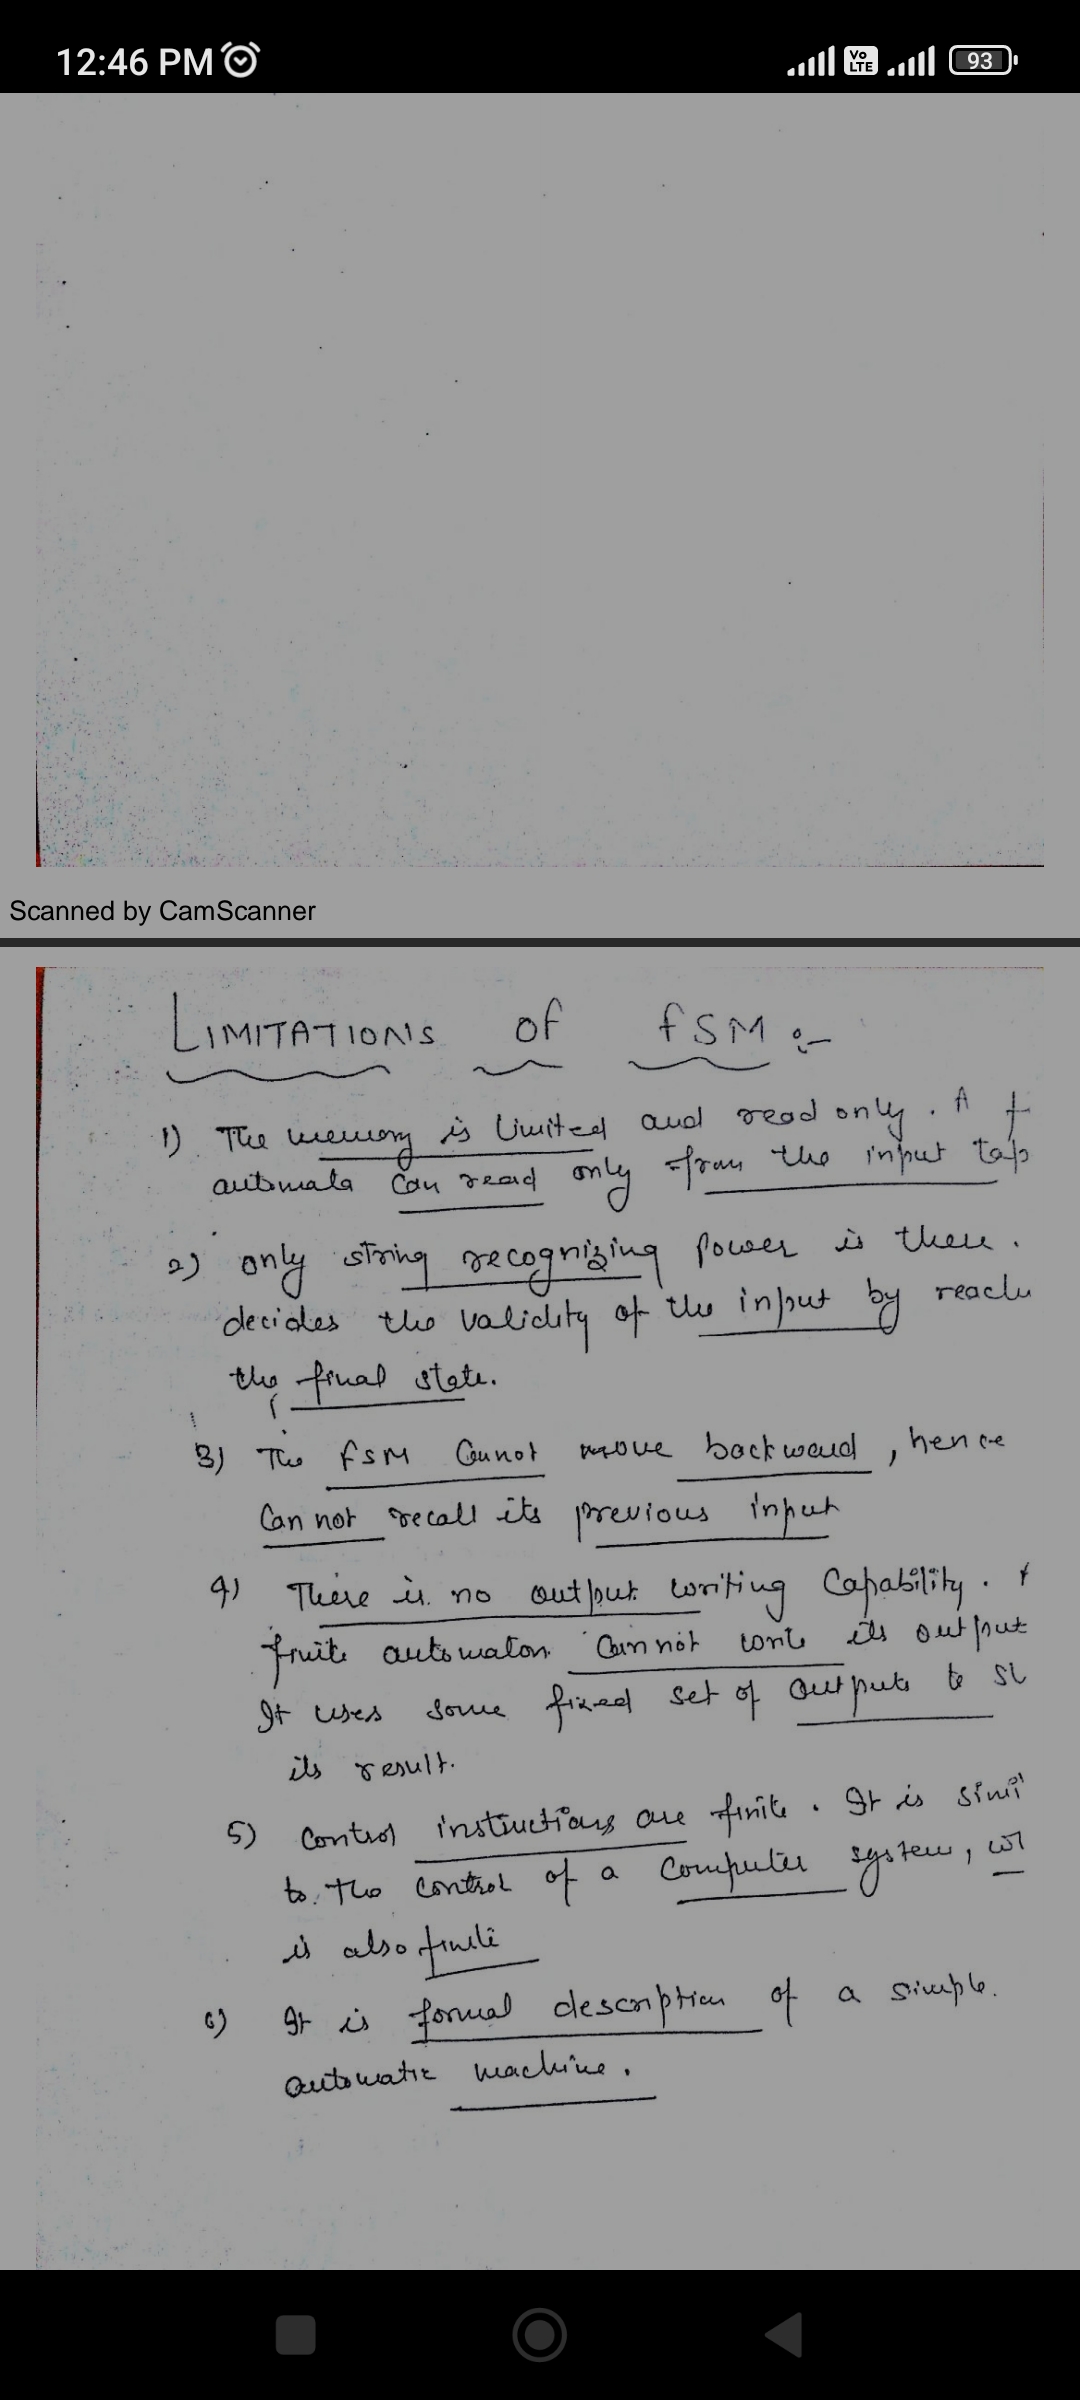 12:46 PM
Vo LTE
93
Scanned by CamScanner
LIMITATIONS of fSM :-
1) The memory is limited and read only. A f
automata can read only from the input tap
2) only string recognizing power is there.
decides the validity of the input by reach
the final state.
3) The FSM Cannot move backward, hence
Can not recall its previous input
4) There is no output writing Capability.
finite automaton Cannot write its output
It uses some fixed set of outputs to
its result.
5) Control instructions are finite. It is simi
to the control of a Computer system, w
is also finite
6) It is formal description of a simple
automatic machine.